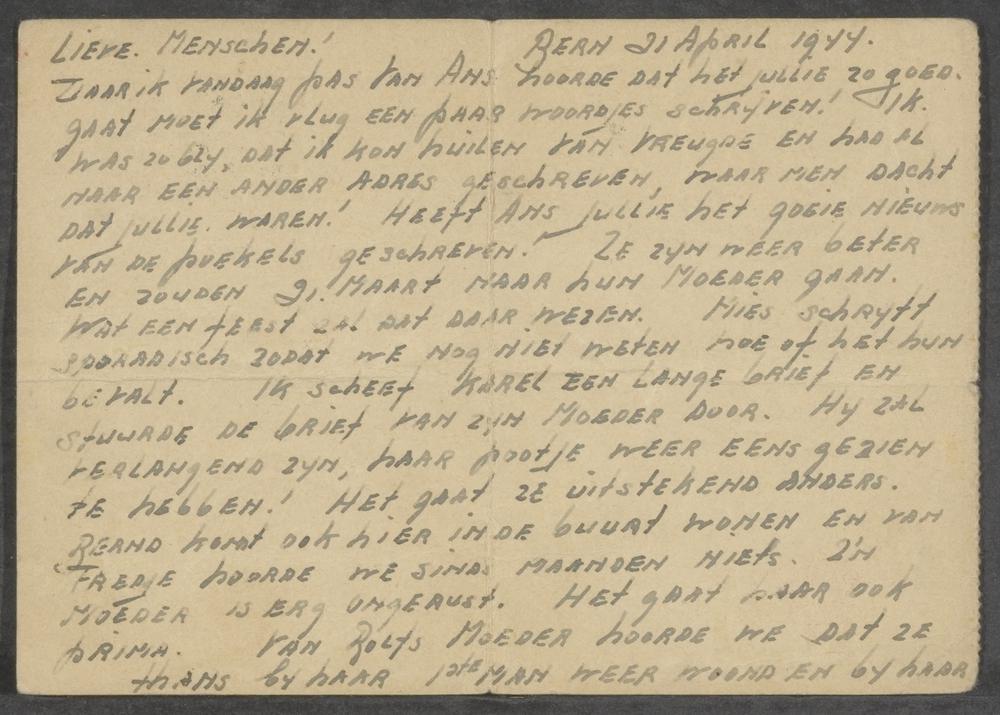 Lieve. Menschen! Bern 21 April 1944.
Daar ik vandaag pas van Ans hoorde dat het jullie zo goed.
gaat moet ik vlug een paar woordjes schrijven! Ik.
was zo bly, dat ik kon huilen van vreugde en had al
naar een ander adres geschreven, waar men dacht
dat jullie. waren! Heeft Ans jullie het goeie nieuws
van de poekels geschreven! Ze zyn weer beter
en zouden 21. Maart naar hun Moeder gaan.
Wat een feest zal dat daar wezen. Mies schryft
sporadisch zodat we nog niet weten hoe of het hun
bevalt. Ik scheef Karel een lange brief en
stuurde de brief van zyn Moeder door. Hy zal
verlangend zyn, haar pootje weer eens gezien
te hebben! Het gaat ze uitstekend anders.
Bernd komt ook hier in de buurt wonen en van
Fredje hoorde we sinds maanden niets. Z'n
Moeder is erg ongerust. Het gaat haar ook
prima. Van Rolfs Moeder hoorde we dat ze
thans by haar 1ste man weer woond en by haar